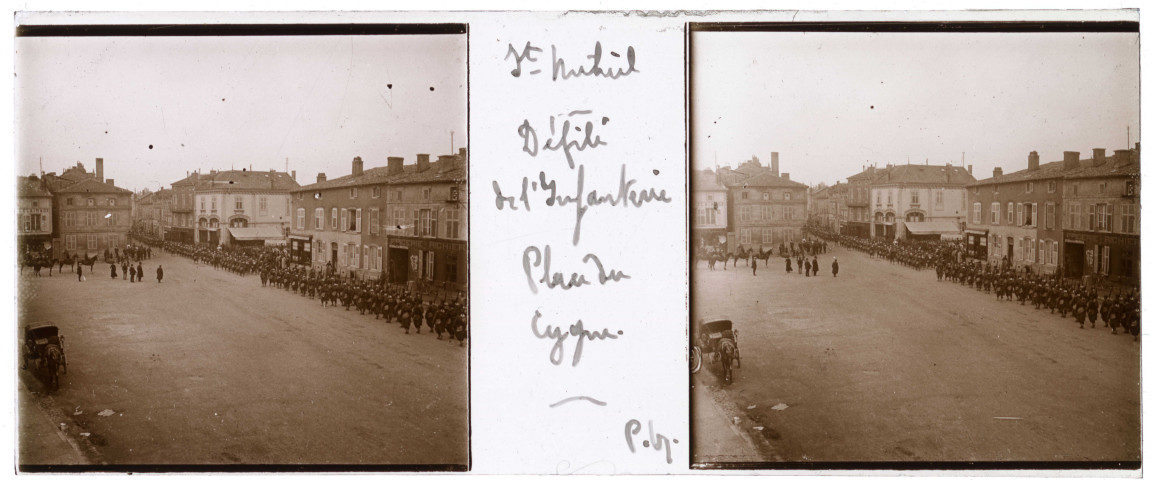 St Mihiel
Défilé
de l'Infanterie
Place du
Cygne.